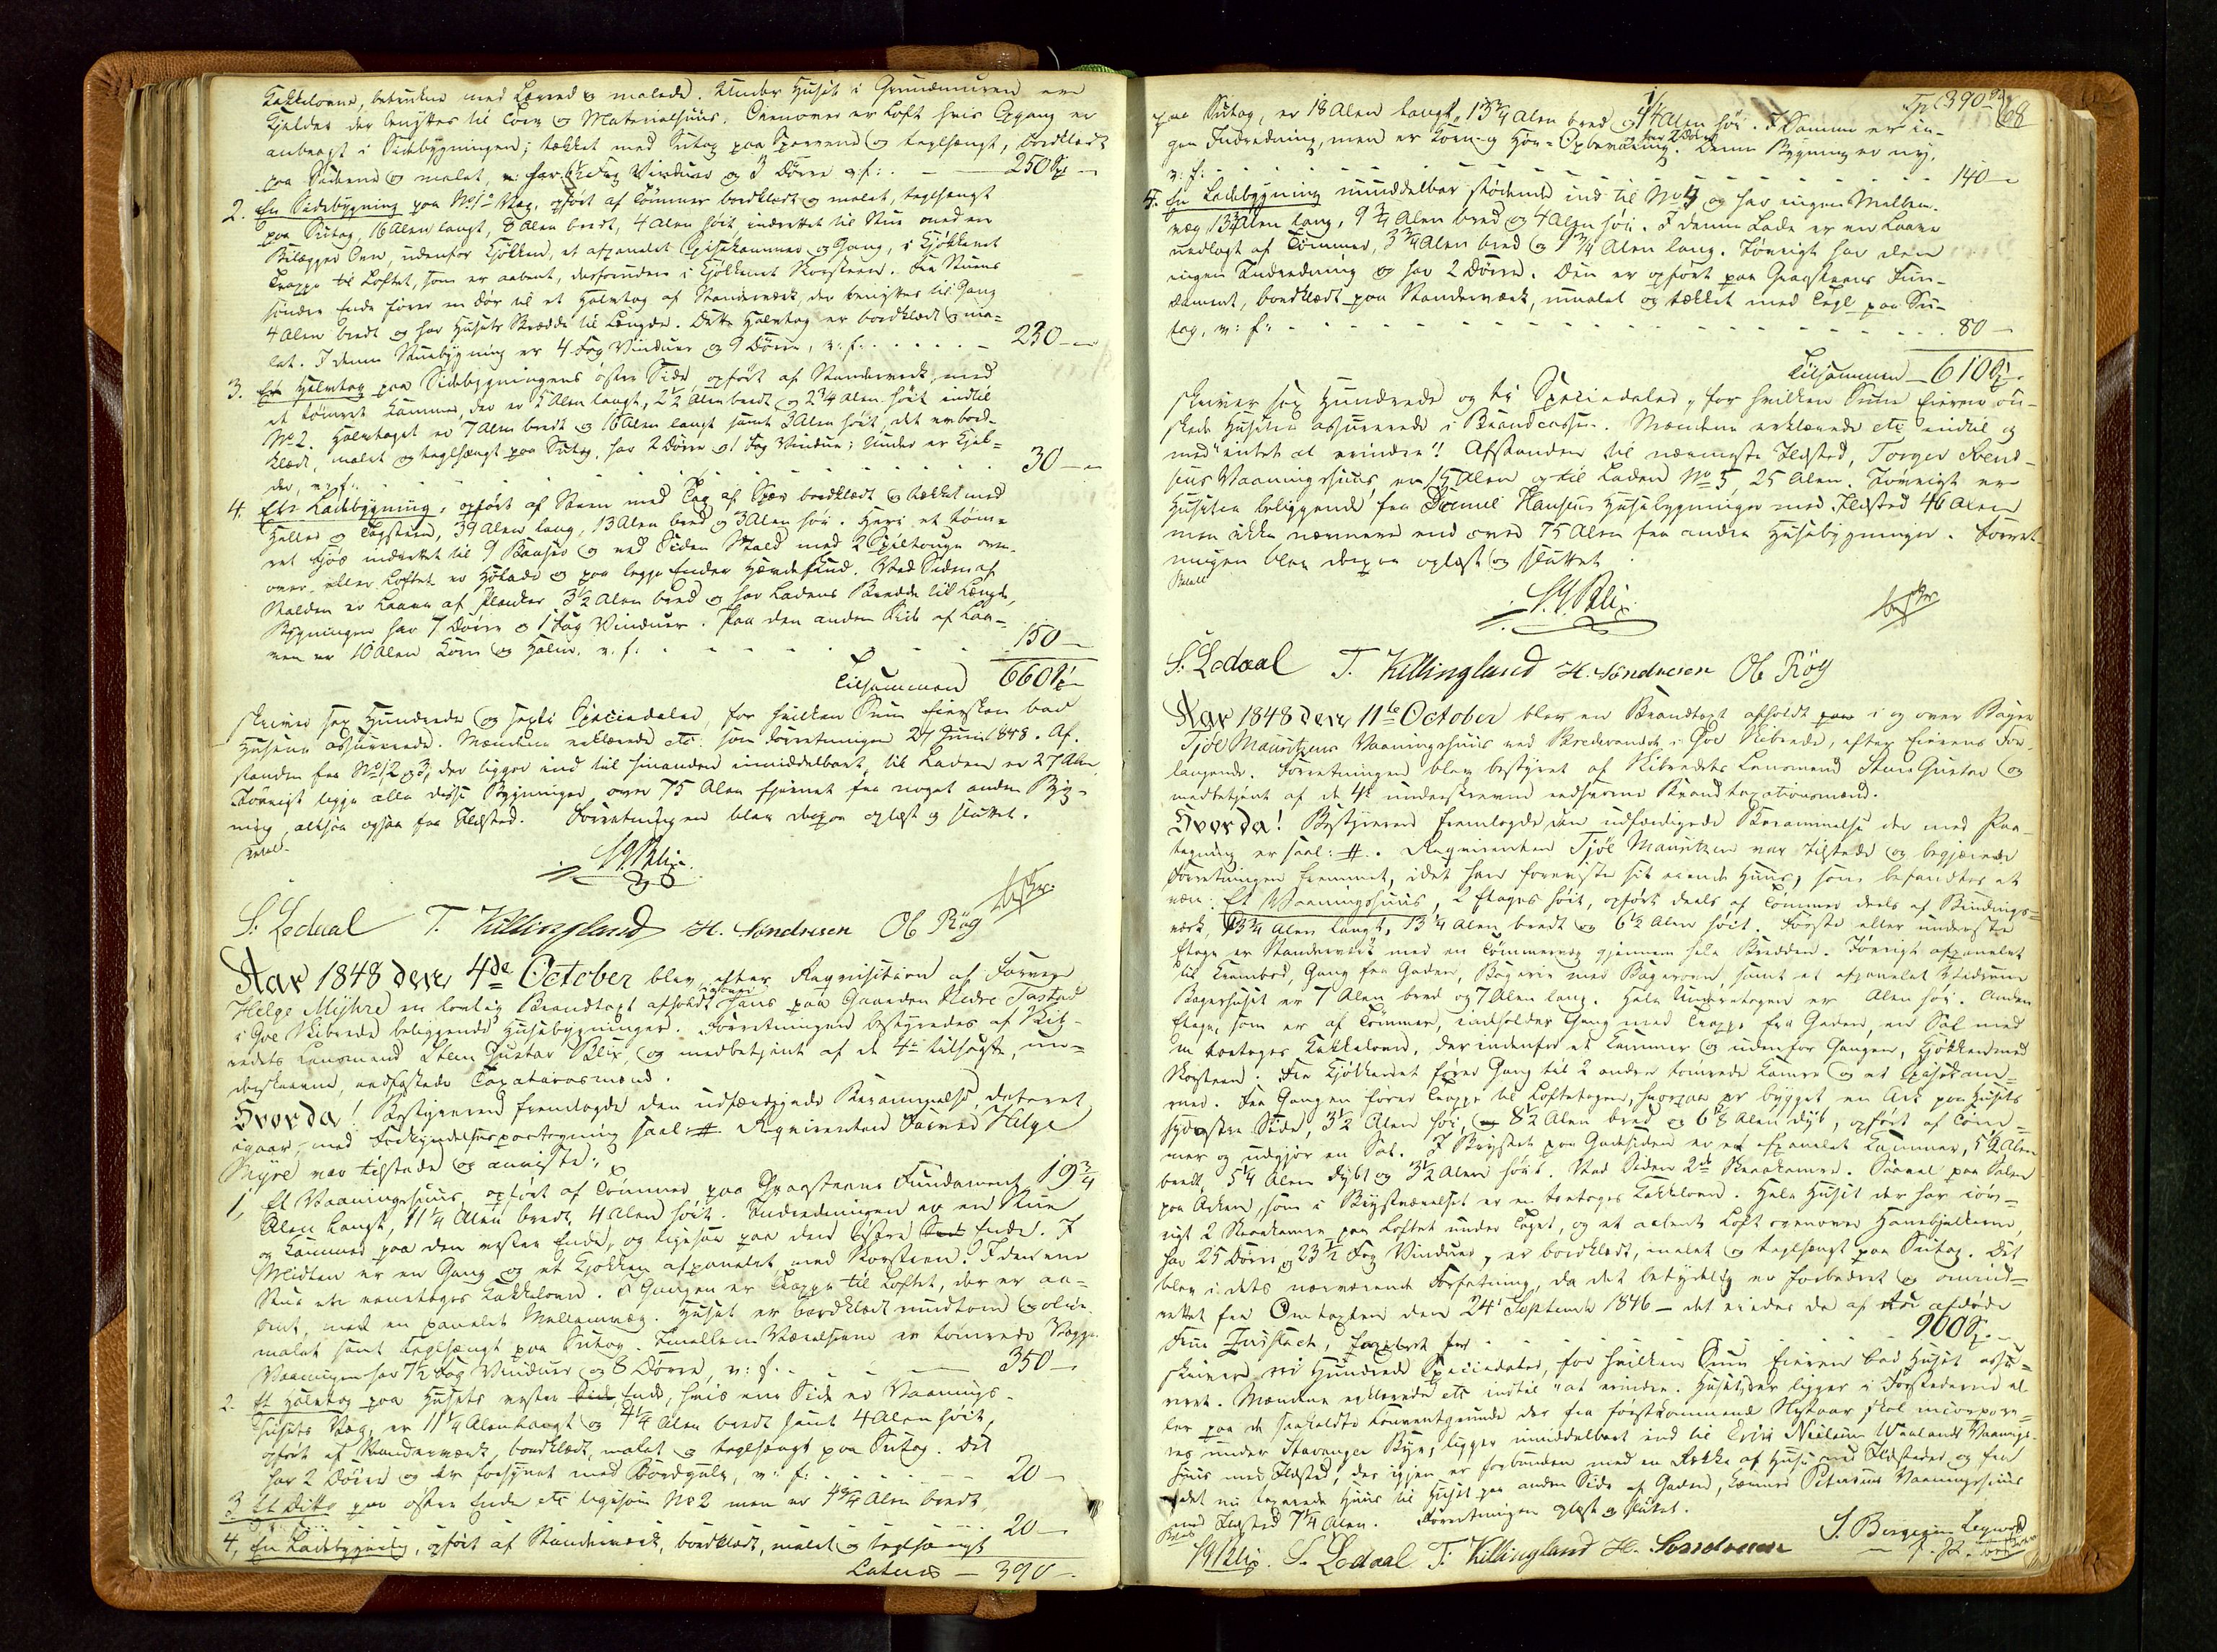 Kakkelovne, betrukne med Lerred og malede. Under Huset i Grundmuren ere
Kjelder der benyttes til Corn og Materialhuus. Ovenover er Loft hvis Opgang er
anbragt i Sidebygningen; tækket med Sutag paa Sperrene og teglhængt, bordklædt
paa Siderne og malet, har Fag Vinduer og 3 Dörre v: f: - 250 Spd
2. En Sidebygning paa No 1 Væg, opfört af Tömmer bordklædt og malet, teglhængt
paa Sutag, 16 Alen langt, 8 Alen bredt, 4 Alen höit, indrettet til Stue med en
Bilægger Ovn, udenfor Kjökken, et afpanelet Spisekammer og Gang, i Kjökkenet
Trappe til Loftet, som er aabent, desforuden i Kjökkenet Skorsteen. Fra Stuens
söndre Ende förer en Dör til et Halvtag af Standerværk, der benyttes til Gang
4 Alen bredt og har Husets Bredde til Længde. Dette Halvtag er bordklædt og ma-
let. I denne Stuebygning er 4 Fag Vinduer og 9 Dörre, v: f: - 230 -
3. Et Halvtag paa Sidebygningens östre Side, opfört af Standerværk, med
et tömret Kammer, der er 5 Alen langt, 2½ Alen bredt og 2¾ Alen höit indtil
No 2. Halvtaget er 7 Alen bredt og 16 Alen langt samt 3 Alen höit, det er bord-
klædt, malet og teglhængt paa Sutag, har 2 Dörre og 1 Fag Vinduer; Under er Kjel-
der, v: f: - 30 -
4. En Ladebygning, opfört af Steen med Tag af Spær bordklædt og tækket med
Heller og Tagsteen, 39 Alen lang, 13 Alen bred og 3 Alen höi. Heri et töm-
ret Fjös indrettet til 9 Baaser og ved Siden Stald med 2 Spiltouge oven-
over, eller Loftet er Hölade og paa begge Ender Ved Siden af
Stalden er Laave af Planker 3½ Alen bred og har Ladens Bredde til Længde,
Bygningen har 7 Dörre og 1 Fag Vinduer. Paa den anden Side af Laa-
ven er 10 Alen Korn og Halm. v: f: - 150 -
Tilsammen 660 Spd
skriver sex Hundrede og sexti Speciedaler, for hvilken Sum Eiersken bad
Husene assurerede. Mændene erklærede etc: som Forretningen 27 Juni 1848. Af-
standen fra No 1, 2 og 3, der ligger ind til hinanden umiddelbart, til Laden er 27 Alen.
Forövrigt ligge alle disse Bygninger over 75 Alen fjernet fra noget andet Byg-
ning, altsaa ogsaa fra Ildsted. Forretningen blev derpaa oplæst og sluttet.
Betalt.
S G Blix
S. Lodaal T. Killingland H. Sondresen Ob Röy
Aar 1848 den 4de October blev efter Requisition af Farver
Helge Myhre en lovlig Brandtaxt afholdt over hans paa Gaarden Nedre Tastad
i Goe Skibrede beliggende Huusebygninger. Forretningen bestyredes af Skib-
redets Lensmand Steen Gustav Blix, og medbetjent af de 4re tilsagte, un-
derskrevne, eedfæstede Taxationsmænd.
Hvorda! Bestyreren fremlagde den udfærdigede Berammelse, dateret
igaar, med Forkyndelsespaategning saal: #. Requirenten Farver Helge
Myre var tilstede og anviste:
1, Et Vaaningshuus, opfört af Tömmer paa Graasteens Fundament, 19¾
Alen langt, 11¼ Alen bredt, 4 Alen höit. Indredningen er en Stue
og Kammer paa den vestre Ende, og ligesaa paa den östre Ende. I
Midten er en Gang og et Kjökken afpanelet, med Skorsteen. I den ene
Stue en eenetages Kakkelovn. I Gangen er Trappe til Loftet, der er aa-
bent, med en panelet Mellemvæg. Huset er bordklædt rundtom og olie-
malet samt teglhængt paa Sutag. Imellem Værelserne er tömrede Vægge.
Vaaningen har 7½ Fag Vinduer og 8 Dörre, v: f. - 350 -
2. Et Halvtag paa Husets vestre Ende, hvis ene Side er Vaanings-
husets Væg, er 11¼ Alen langt og 4¼ Alen bredt samt 4 Alen höit,
opfört af Standerværk, bordklædt, malet og teglhængt paa Sutag. Det
har 2 Dörre og er forsynet med Bordgulv, v: f: - 20 -
3. Et Ditto paa östre Ende etc ligesom No 2 men er 4¾ Alen bredt,
20 -
4, En Ladebygning, opfört af Standerværk, bordklædt, malet og teglhængt
Lateris - 390 -
Tp: 390 Spd 68
paa Sutag, er 18 Alen langt, 13¼ Alen bred og 4¼ Alen höi. I Samme er in-
gen Indredning, men er Korn og Höe-Opbevaring. og har 2 Dörre Denne Bygning er ny,
v: f: - 140 -
5. En Ladebygning umiddelbar stödende ind til No 4 og har ingen Mellem-
væg, 13¾ Alen lang, 9¾ Alen bred og 4 Alen höi. I denne Lade er en Laave
nedlagt af Tömmer, 3¾ Alen bred og 9¾ Alen lang. Forövrigt har den
ingen Indredning og har 2 Dörre. Den er opfört paa Graasteens Fun-
dament, bordklædt paa Standerværk, umalet og tækket med Tegl paa Su-
tag, v: f: - 80 -
Tilsammen - 610 Spd
skriver sex Hundrede og ti Speciedaler, for hvilken Sum Eieren ön-
skede Husene assurerede i Brandcassen. Mændene erklærede etc indtil og
med "intet at erindre". Afstanden til nærmeste Ildsted, Torger Svend-
sens Vaaningshuus, er 15 Alen og til Laden No 5 25 Alen. Forövrigt er
Husene beliggende fra Daniel Hansens Husebygninger med Ildsted 46 Alen
men ikke nærmere end over 75 Alen fra andre Husebygninger. Forret-
ningen blev derpaa oplæst og sluttet.
Betalt
S. G. Blix
S. Lodaal T. Killingland H. Sondresen Ob Röy
Aar 1848 den 11te October blev en Brandtaxt afholdt i og over Bager
Tjöl Mauritzens Vaaningshuus ved i Goe Skibrede, efter Eierens For-
langende. Forretningen blev bestyret af Skibredets Lensmand Steen Gustav og
medbetjent af de 4re underskrevne eedsvorne Brandtaxationsmænd.
Hvorda! Bestyreren fremlagde den udfærdigede Berammelse der med Paa-
tegning er saal: #. Requirenten Tjöl Mauritzen var tilstede og begjærede
Forretningen fremmet, idet han foreviste sit eiende Huus, som befandtes at
være: Et Vaaningshuus, 2 Etager höit, opfört deels af Tömmer deels af Bindings-
værk, 13¾ Alen langt, 13¼ Alen bredt og 6½ Alen höit. Förste eller underste
Etage er Standerværk med en Tömmervæg gjennem hele Bredden. Forövrigt afpanelet
til Krambod, Gang fra Gaden, Bagerie med Bagerovn, samt et afpanelet
Bagerhuset er 7 Alen bred og 7 Alen lang. Hele Underetagen er Alen höi. Anden
Etage, som er af Tömmer, indeholder Gang med Trappe fra Gaden, en Sal med
en toetages Kakkelovn, der indenfor et Kammer og udenfor Gangen, Kjökken med
Skorsteen. Fra Kjökkenet förer Gang til 2 andre tömrede Kamre og et Spisekam-
mer. Fra Gangen förer Trappe til Loftetagen, hvorpaa er bygget en Ark paa Husets
sydostre Side, 3½ Alen höi, 8½ Alen bred og 6⅛ Alen dyb, opfört af Töm-
mer og udgjör en Sal. I Brystet paa Gadesiden er et afpanelet Kammer, 5¼ Alen
bredt, 5¼ Alen dybt og 3½ Alen höit. Ved Siden 2de Skraakamre. Saavel paa Salen
paa Arken, som i Brystværelset er en toetages Kakkelovn. Hele Huset der har iöv-
rigt 2 Skraakamre paa Loftet under Taget, og et aabent Loft ovenover Hanebjelkerne,
har 25 Dörre, og 23½ Fag Vinduer, er bordklædt, malet og teglhængt paa Sutag. Det
blev i dets nærværende Forfatning, da det betydelig er forbedret og omind-
rettet fra Omtaxten den 24' September 1846 - det eiedes da af afdöde
Frue Zurstach, taxeret for - 900 Spd.
skriver ni Hundrede Speciedaler, for hvilken Sum Eieren bad Huset assu-
reret. Mændene erklærede etc indtil "at erindre. Huset, der ligger i Forstæderne el-
ler paa de saakaldte Conventgrunde der fra förstkommende Nytaar skal incorpore-
res under Stavanger Bye, ligger umiddelbart ind til Nielsen Waalands Vaanings-
huus med Ildsted, der igjen er forbunden med en Række af Huse med Ildsteder og fra
det nu taxerede Huus til Huset paa anden Side af Gaden, Petersens Vaaningshuus
med Ildsted 7¼ Alen. Forretningen oplæst og sluttet.
SGBlix. S. Lodaal T. Killingland H. Sondresen S. Börgesen